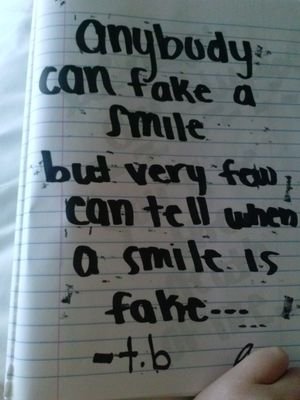 anybody
can fake a
smile
but very few
can tell when
a smile is
fake---...
-t.b